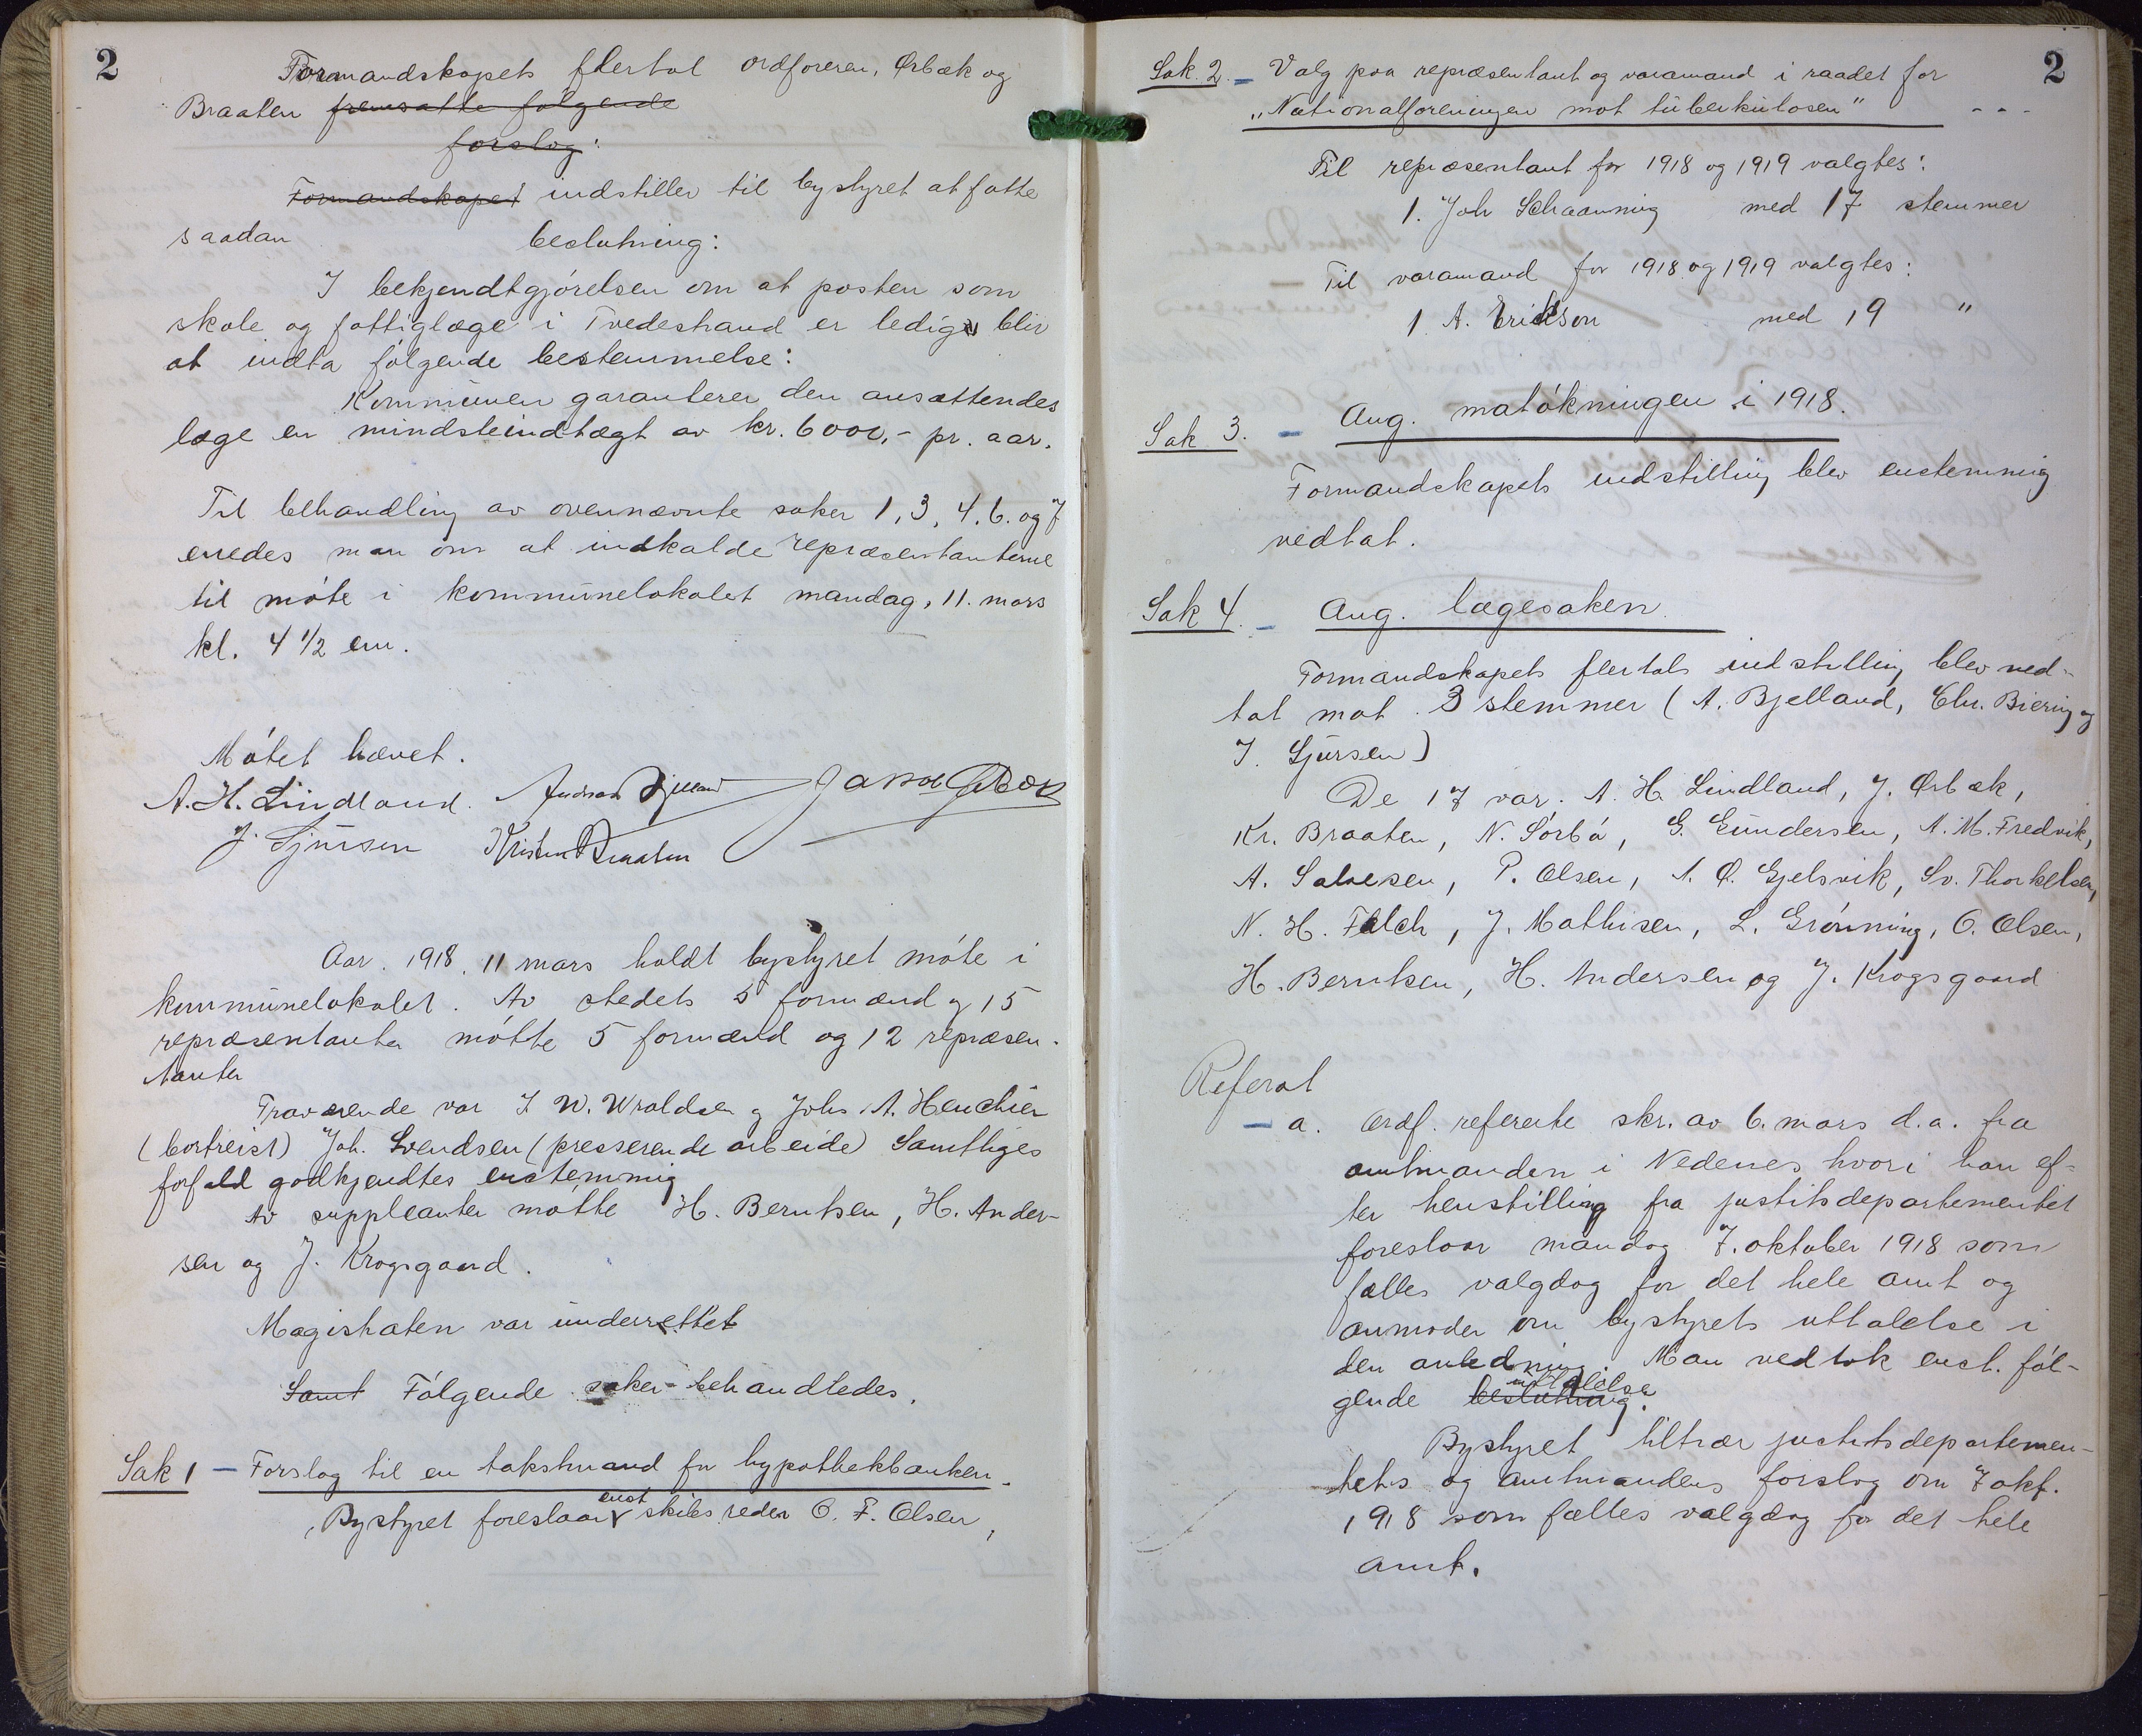 2
Formandskapets flertal ordføreren, Ørbæk og
Braaten fremsatte følgende
forslog:
Formandskapet indstiller til bystyret at fatte
saadan beslutning:
I bekjendtgjørelsen om at posten som
skole og fattiglæge i Tvedestrand er ledig blir
at indta følgende bestemmelse:
Kommunen garanterer den ansættendes
læge en mindsteindtægt av kr. 6000,- pr. aar.
Til behandling av ovennævnte saker 1, 3, 4, 6. og 7
enedes man om at indkalde repræsentanterne
til møte i kommunelokalet mandag, 11. mars
kl. 4 1/2 em.
Møtet hævet.
A. H. Lindland. Andreas Bjelland Jakob Ørbæk
J. Sjürsen Kristen Braaten
Aar. 1918. 11 mars holdt bystyret møte i
kommunelokalet. Av stedets 5 formænd og 15
repræsentanter møtte 5 formænd og 12 repræsen-
tanter
Fraværende var J. W. Wroldsen og Johs. A. Henchien
(bortreist) Joh. Svendsen (presserende arbeide) Samtliges
forfald godkjendtes enstemmig
Av suppleanter møtte H. Berntsen, H. Ander-
sen og J. Krogsgaard.
Magistraten var underrettet
Samt Følgende saker behandledes.
Sak 1 - Forslag til en takstmand for hypothekbanken.
Bystyret foreslaar enst skibsreder O. F. Olsen,
2
Sak. 2. - Valg paa repræsentant og varamand i raadet for
„Nationalforeningen mot tuberkulosen" - - -
Til repræsentant for 1918 og 1919 valgtes:
1. Joh Schaanning med 17 stemmer
Til varamand for 1918 og 1919 valgtes:
1. A. Erikson med 19 "
Sak 3. - Ang. matøkningen i 1918.
Formandskapets indstilling blev enstemmig
vedtat.
Sak 4. - Ang. lægesaken.
Formandskapets flertals indstilling blev ved-
tat mot 3 stemmer (A. Bjelland, Chr. Biering og
J. Sjürsen)
De 17 var. A. H. Lindland, J. Ørbæk,
Kr. Braaten, N. Sørbø, G. Gundersen, A. M. Fredvik,
A. Salvesen, P. Olsen, A. O. Gjelsvik, Sv. Thorkelsen,
N. H. Falch, J. Mathisen, L. Grønning, O. Olsen,
H. Berntsen, H. Andersen og J. Krogsgaard
Referat
- a. Ordf. refererte skr. av 6. mars d.a. fra
amtmanden i Nedenes hvori han ef-
ter henstilling fra justitsdepartementet
foreslaar mandag 7. oktober 1918 som
fælles valgdag for det hele amt og
anmoder om bystyrets uttalelse i
den anledning. Man vedtok enst. føl-
gende beslutning uttalelse:
Bystyret tiltrær justitsdepartemen-
tets og amtmandens forslag om 7 okt.
1918 som fælles valgdag for det hele
amt.